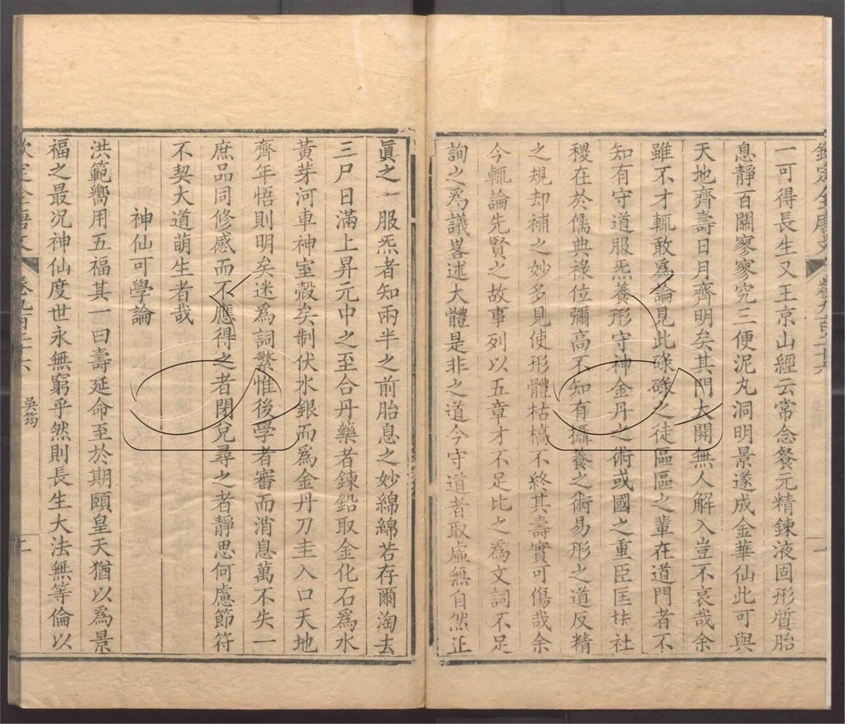 一可得長生又王京山經云常念餐元精鍊液固形質胎
息靜百關寥寥究三便泥丸洞明景遂成金華仙此可與
天地齊壽日月齊明矣其門大開無人解入豈不哀哉余
雖不才輒敢爲論見此碌碌之徒區區之輩在道門者不
知有守道服炁養形守神金丹之術或國之重臣匡扶社
稷在於儒典祿位彌高不知有攝養之術易形之道反精
之規却補之妙多見使形體枯槁不終其壽實可傷哉余
今輒論先賢之故事列以五章才不足比之爲文詞不足
詢之爲議畧述大體是非之道今守道者取虛無自然正
眞之一服炁者知兩半之前胎息之妙綿綿若存爾淘去
三尸日滿上昇元中之至合丹藥者鍊鉛取金化石爲水
黃芽河車神室殼矣制伏水銀而爲金丹刀圭入口天地
齊年悟則明矣迷爲詞繁惟後學者審而消息萬不失一
庶品同修感而不應得之者閉兌尋之者靜思何慮節符
不契大道萌生者哉
神仙可學論
洪範嚮用五福其一曰壽延命至於期頤皇天猶以爲景
福之最况神仙度世永無窮乎然則長生大法無等倫以
欽定全唐文 卷九百二十六 吳筠